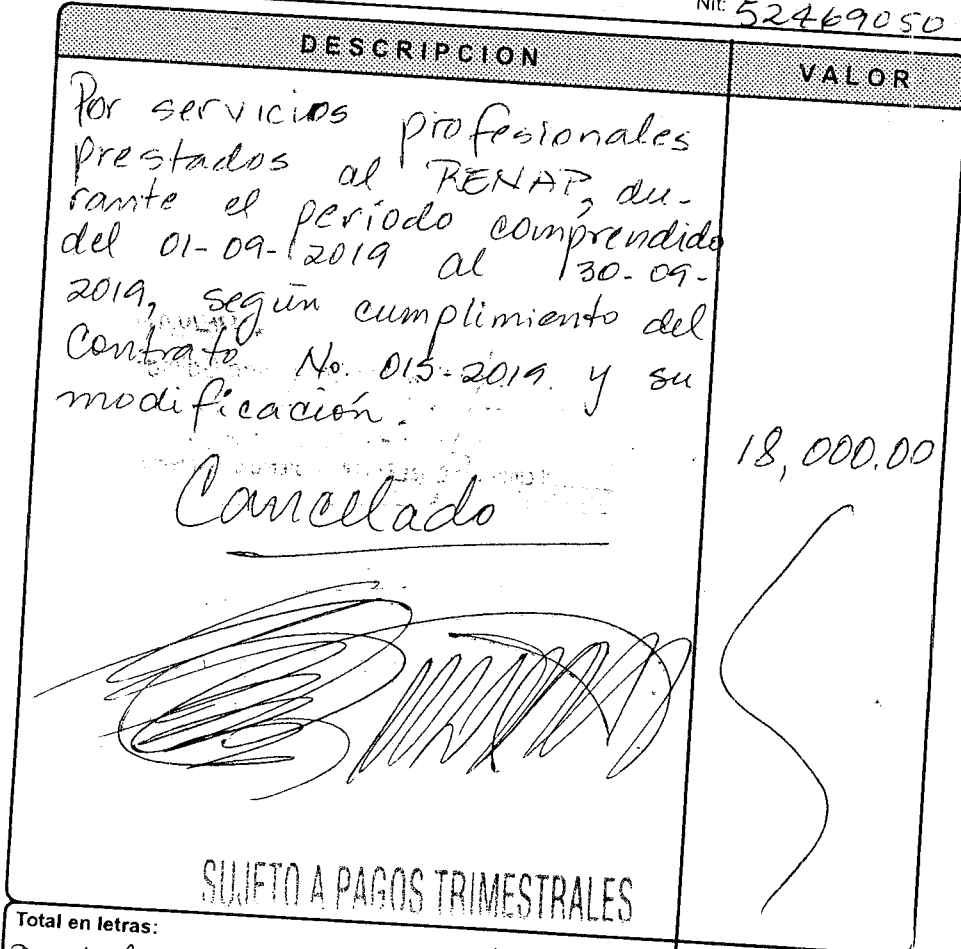 Nit: 52469050
DESCRIPCION
VALOR
Por servicios profesionales
prestados al RENAP, du-
rante el período comprendido
del 01-09-2019 al 30-09-
2019, según cumplimiento del
Contrato No. 015-2019. y su
modificación.
18,000.00
Cancelado
SUJETO A PAGOS TRIMESTRALES
Total en letras: